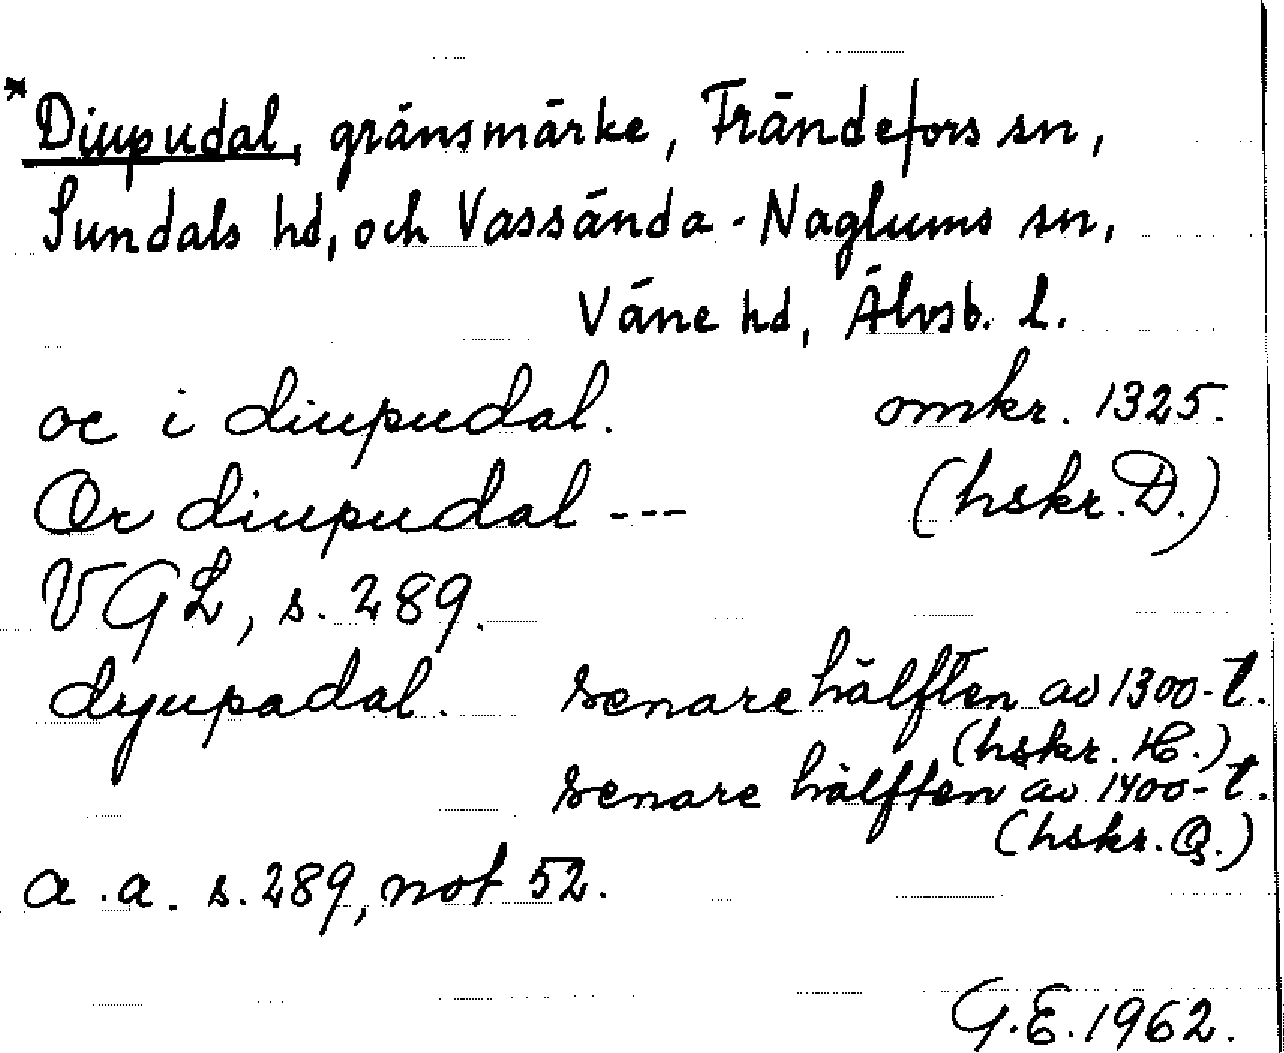 *Diupudal, gränsmärke, Frändefors sn,
Sundals hd, och Vassända-Naglums sn,
Väne hd, Älvsb. l.
oc i diupudal. omkr. 1325.
Or diupudal --- (hskr. D.)
VGL, s. 289.
dyupadal. senare hälften av 1300-t.
(hskr. H.)
senare hälften av 1400-t.
(hskr. Q.)
a.a. s. 289, not 52.
G.E. 1962.